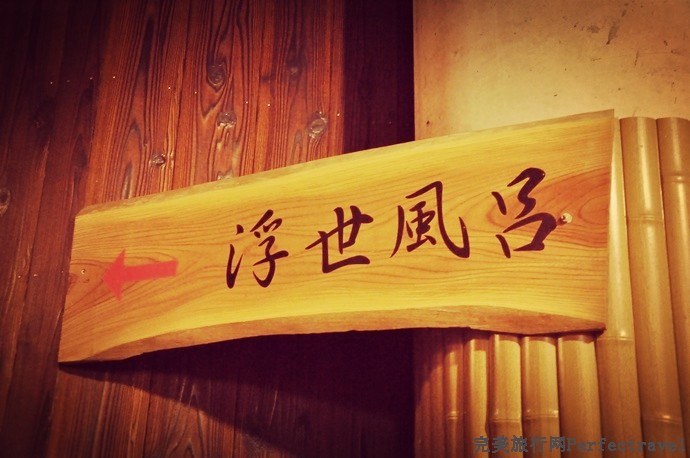 浮世風呂
完美旅行网Perfectravel